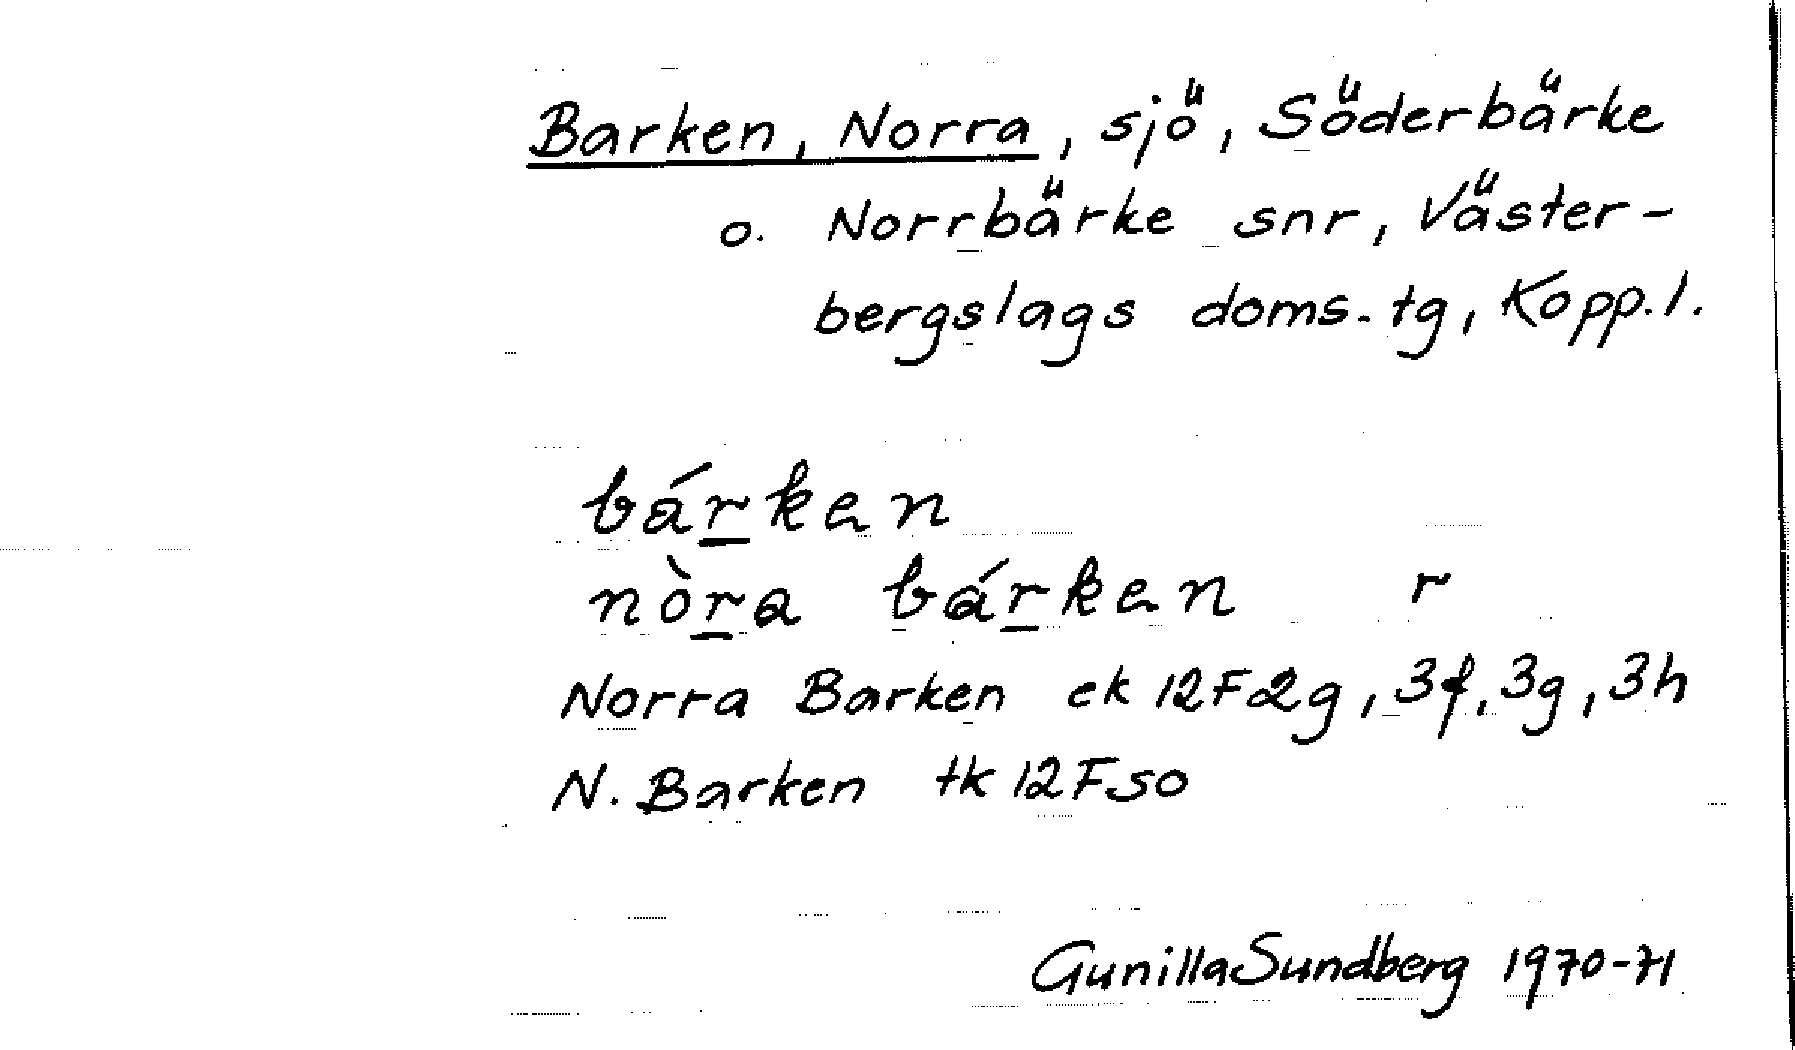 Barken, Norra, sjö, Söderbärke
o. Norrbärke snr, Väster-
bergslags doms. tg, Kopp. l.
bár̲ken
nòr̲a bár̲ken r
Norra Barken ek 12F2g, 3f, 3g, 3h
N. Barken tk 12FSO
Gunilla Sundberg 1970-71